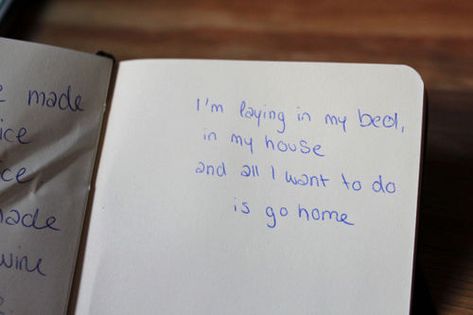 made
ice
ice
made
wine
I'm laying in my bed,
in my house
and all I want to do
is go home